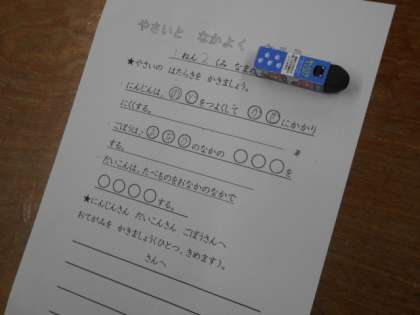 やさいと なかよく
1ねん 2 くみ なまえ
★やさいの はたらきを かきましょう。
にんじんは、 をつよくして にかかり
にくくする。
・ごぼうは、 のなかの ○○○を
する。
・だいこんは、たべものをおなかのなかで
○○○○する。
★にんじんさん だいこんさん ごぼうさんへ
おてがみを かきましょう(ひとつ、きめます)。
さんへ